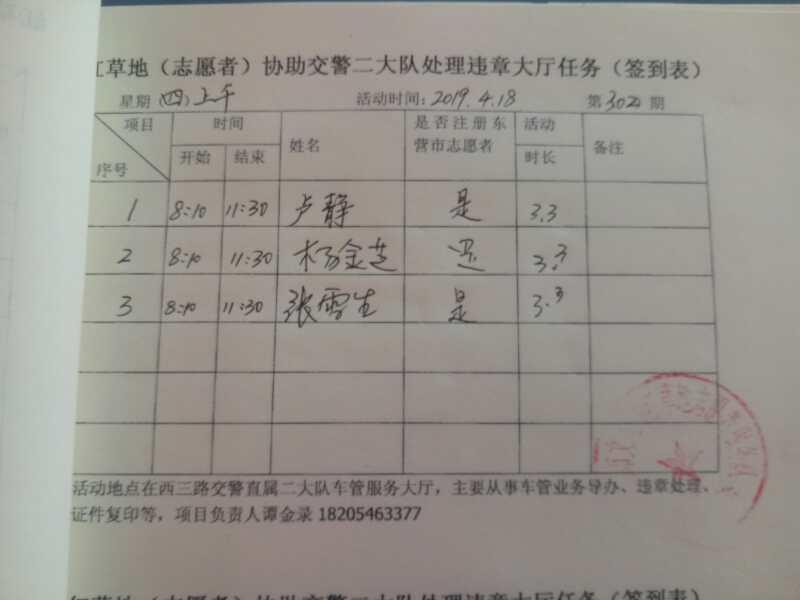 草地（志愿者）协助交警二大队处理违章大厅任务（签到表）
星期 (四)上午 活动时间：2019.4.18 第302期
项目 时间 姓名 是否注册东营市志愿者 活动时长 备注
序号 开始 结束
1 8:10 11:30 卢静 是 3.3
2 8:10 11:30 杨金芝 是 3.3
3 8:10 11:30 张雪生 是 3.3
活动地点在西三路交警直属二大队车管服务大厅，主要从事车管业务导办、违章处理、
证件复印等，项目负责人谭金录 18205463377
草地（志愿者）协助交警二大队处理违章大厅任务（签到表）